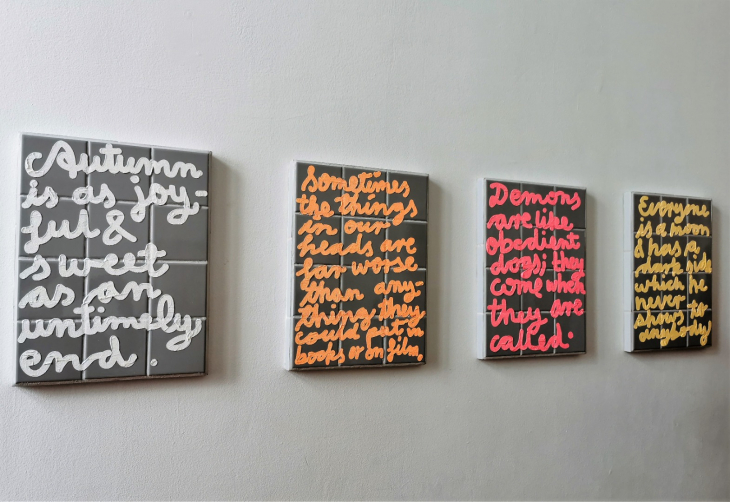 Autumn
is as joy-
ful &
sweet
as an
untimely
end.
Sometimes
the things
in our
heads are
far worse
than any-
thing they
could put in
books or on film.
Demons
are like
obedient
dogs; they
come when
they are
called.
Everyone
is a moon
& has a
dark side
which he
never
shows to
anybody